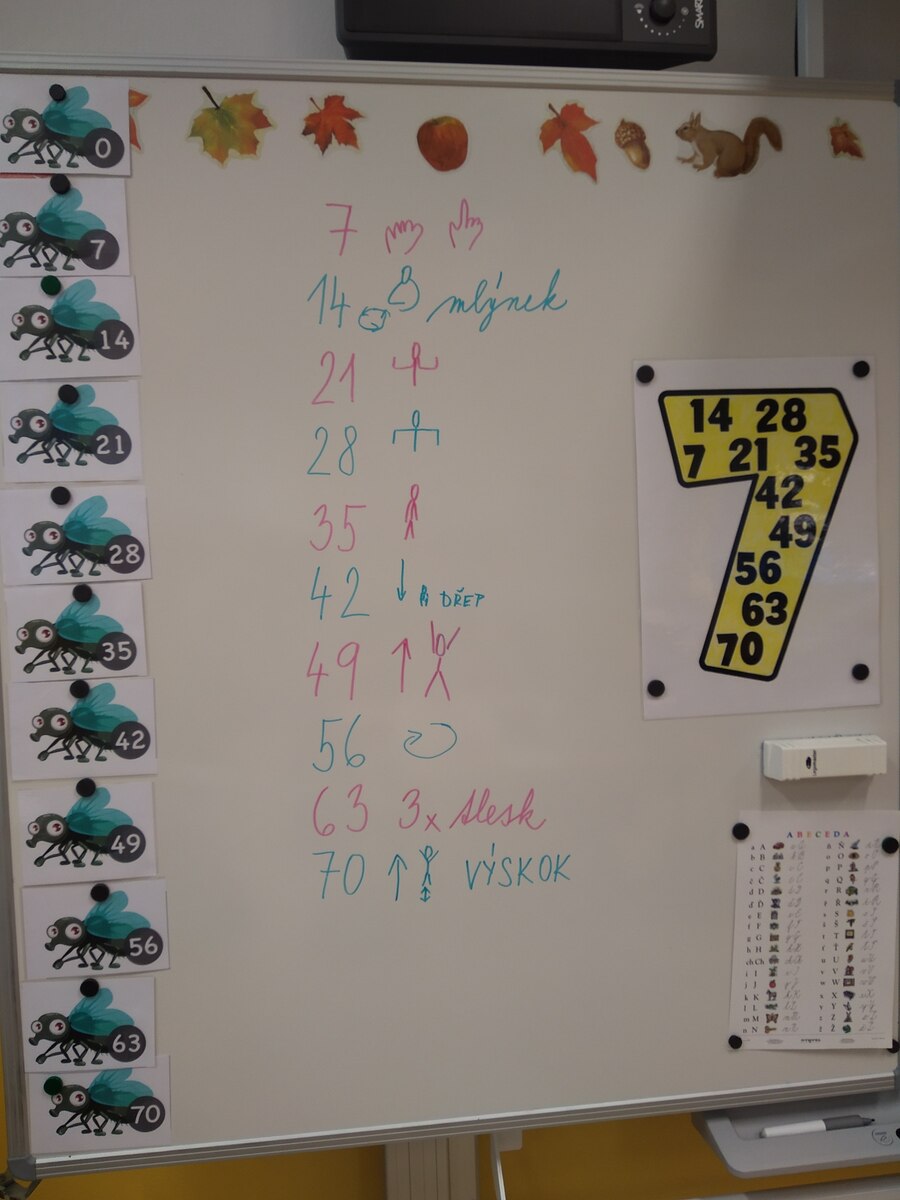 SMART
0
7
14
21
28
35
42
49
56
63
70
7
14 mlýnek
21
28
35
42 DŘEP
49
56
63 3x tlesk
70 VÝSKOK
14 28
7 21 35
42
49
56
63
70
ABECEDA
a A
b B
c C
č Č
d D
ď Ď
e E
f F
g G
h H
ch Ch
i I
j J
k K
l L
m M
n N